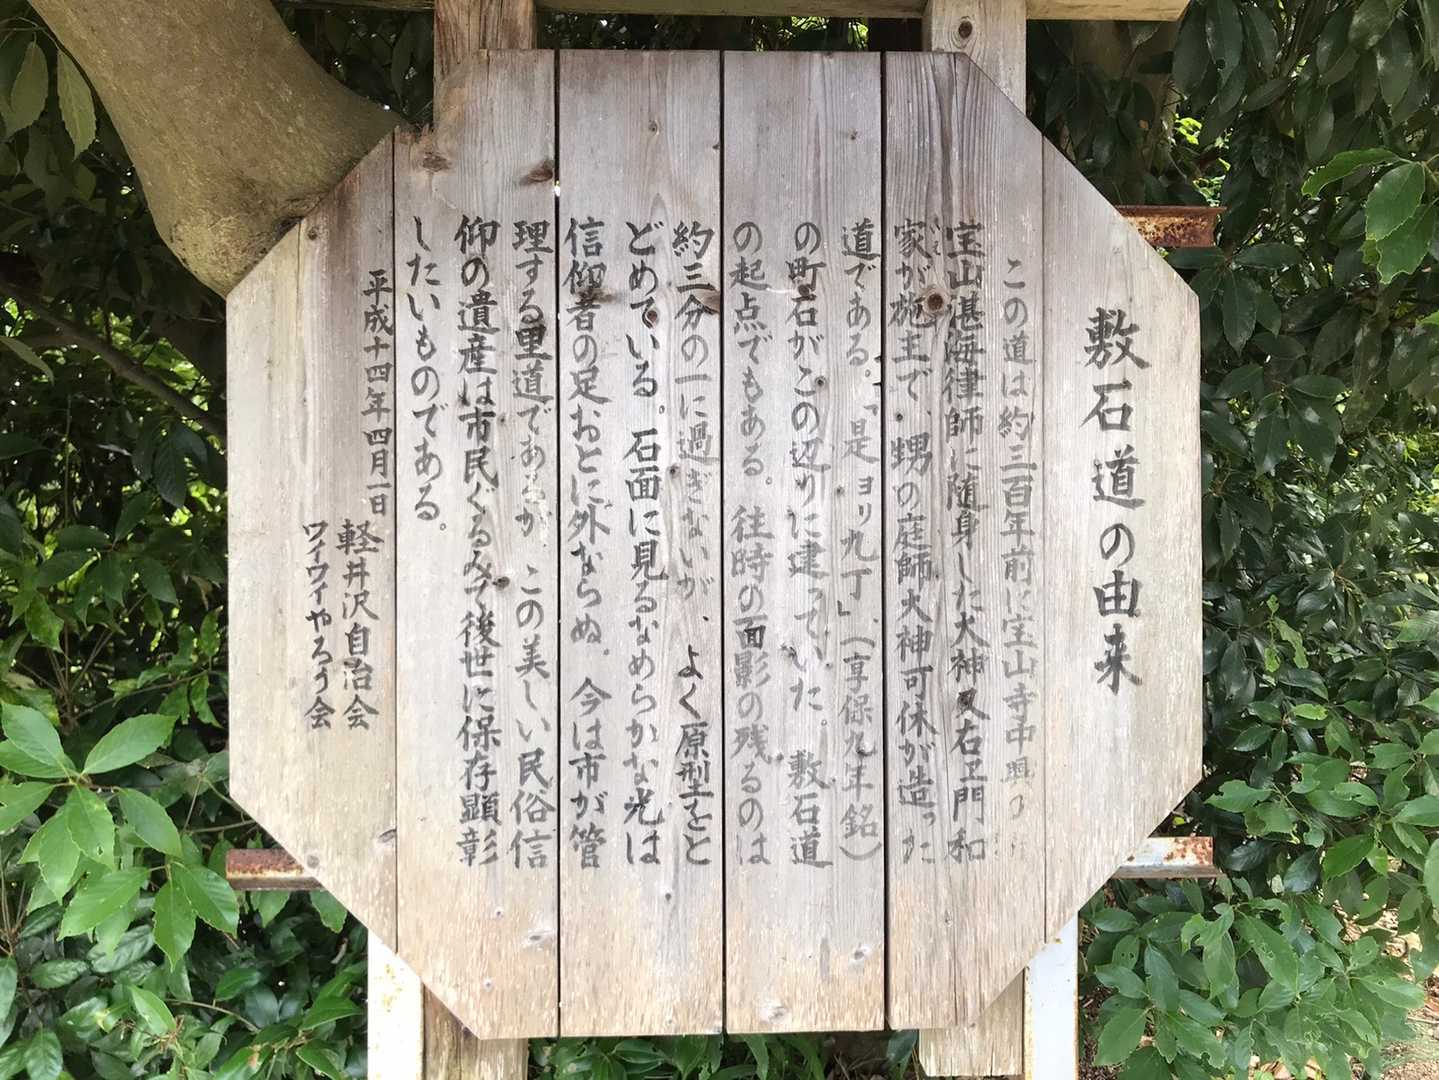 敷石道の由来
この道は約三百年前に宝山寺中興の
宝山湛海律師に随身した大神又右ヱ門和
家が施主で、甥の庭師大神可休が造った
道である。「是ヨリ九丁」（享保九年銘）
の町石がこの辺りに建っていた。敷石道
の起点でもある。往時の面影の残るのは
約三分の一に過ぎないが、よく原型をと
どめている。石面に見るなめらかな光は
信仰者の足おとに外ならぬ。今は市が管
理する里道であるが、この美しい民俗信
仰の遺産は市民ぐるみで後世に保存顕彰
したいものである。
平成十四年四月一日
軽井沢自治会
ワイワイやろう会